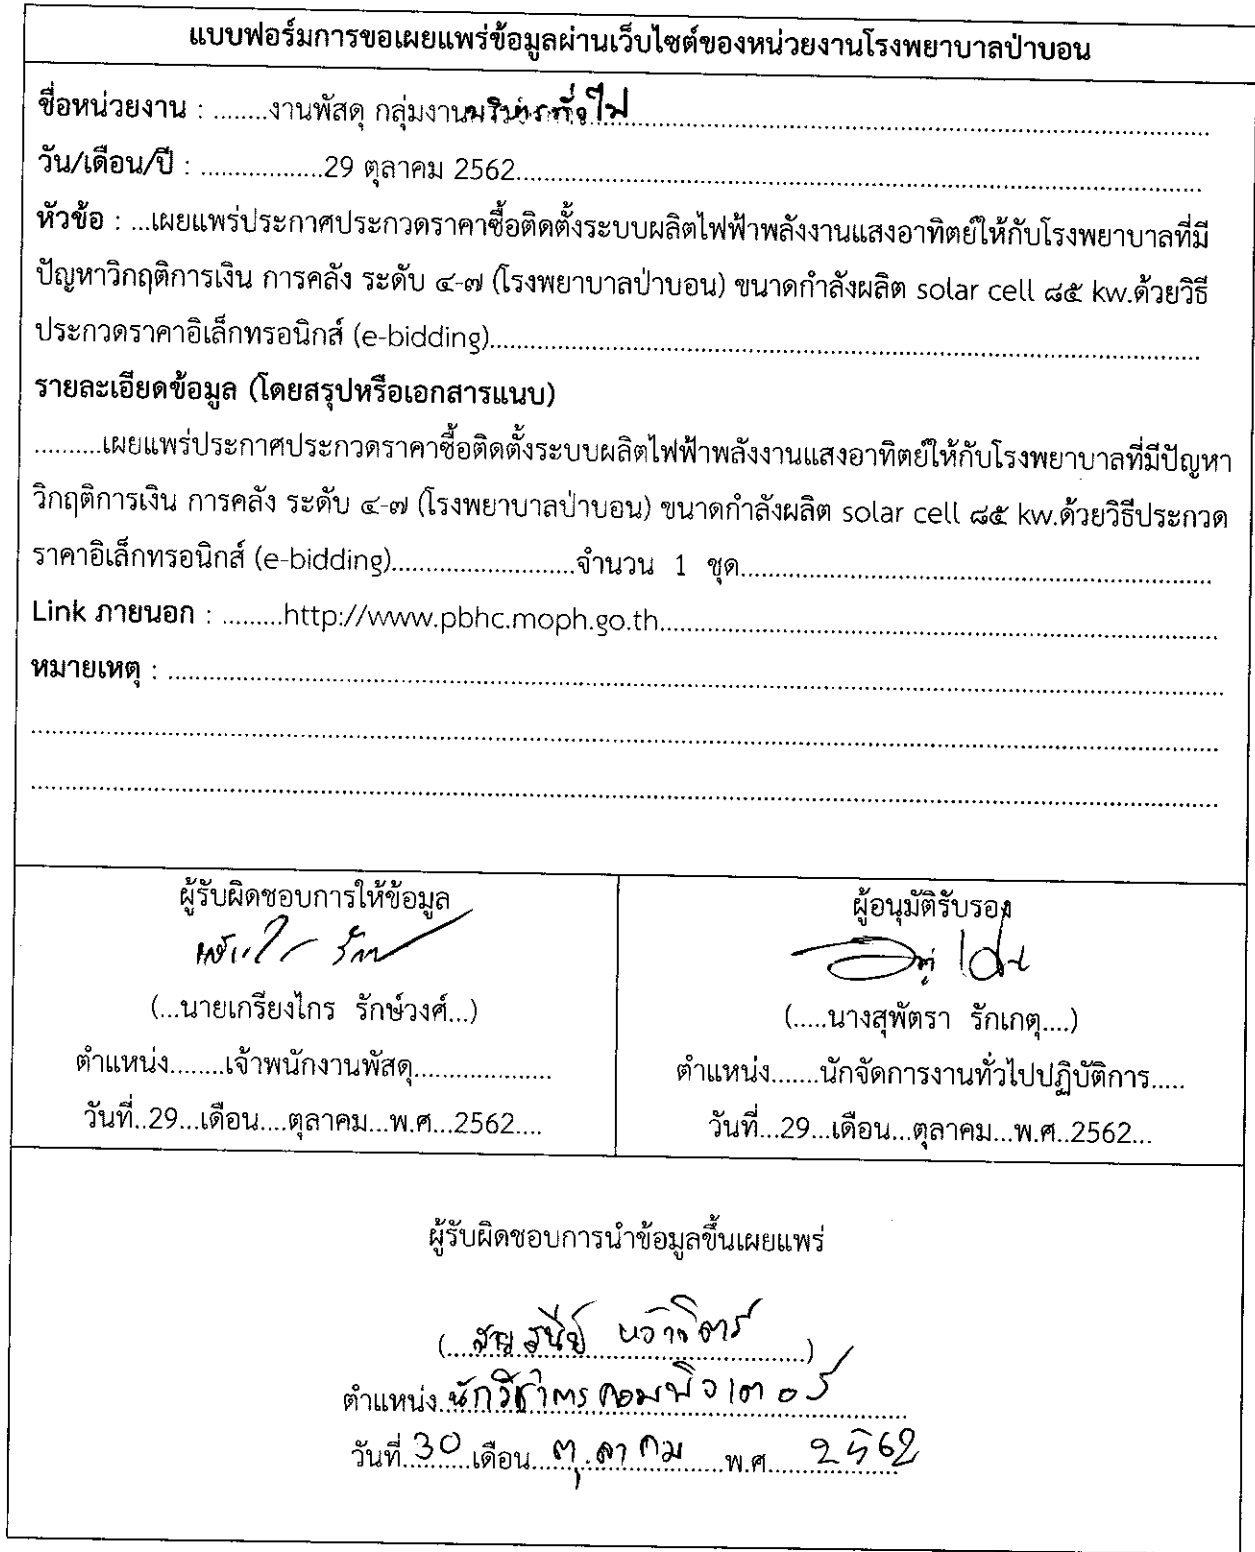 แบบฟอร์มการขอเผยแพร่ข้อมูลผ่านเว็บไซต์ของหน่วยงานโรงพยาบาลป่าบอน
ชื่อหน่วยงาน : ........งานพัสดุ กลุ่มงานบริหารทั่วไป........
วัน/เดือน/ปี : ..................29 ตุลาคม 2562........
หัวข้อ : ...เผยแพร่ประกาศประกวดราคาซื้อติดตั้งระบบผลิตไฟฟ้าพลังงานแสงอาทิตย์ให้กับโรงพยาบาลที่มี
ปัญหาวิกฤติการเงิน การคลัง ระดับ ๔-๗ (โรงพยาบาลป่าบอน) ขนาดกำลังผลิต solar cell ๘๕ kw.ด้วยวิธี
ประกวดราคาอิเล็กทรอนิกส์ (e-bidding)........
รายละเอียดข้อมูล (โดยสรุปหรือเอกสารแนบ)
..........เผยแพร่ประกาศประกวดราคาซื้อติดตั้งระบบผลิตไฟฟ้าพลังงานแสงอาทิตย์ให้กับโรงพยาบาลที่มีปัญหา
วิกฤติการเงิน การคลัง ระดับ ๔-๗ (โรงพยาบาลป่าบอน) ขนาดกำลังผลิต solar cell ๘๕ kw.ด้วยวิธีประกวด
ราคาอิเล็กทรอนิกส์ (e-bidding)...........................จำนวน 1 ชุด........
Link ภายนอก : .........http://www.pbhc.moph.go.th........
หมายเหตุ : ........
ผู้รับผิดชอบการให้ข้อมูล
(...นายเกรียงไกร รักษ์วงศ์...)
ตำแหน่ง........เจ้าพนักงานพัสดุ....................
วันที่..29...เดือน....ตุลาคม...พ.ศ...2562....
ผู้อนุมัติรับรอง
(.....นางสุพัตรา รักเกตุ....)
ตำแหน่ง.......นักจัดการงานทั่วไปปฏิบัติการ.....
วันที่...29...เดือน...ตุลาคม...พ.ศ..2562...
ผู้รับผิดชอบการนำข้อมูลขึ้นเผยแพร่
ตำแหน่ง นักวิชาการคอมพิวเตอร์
วันที่ 30 เดือน ตุลาคม พ.ศ. 2562